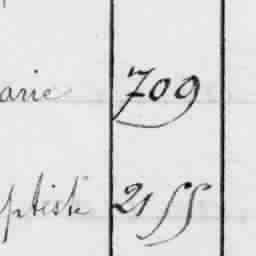 arie 709
ptiste 2155